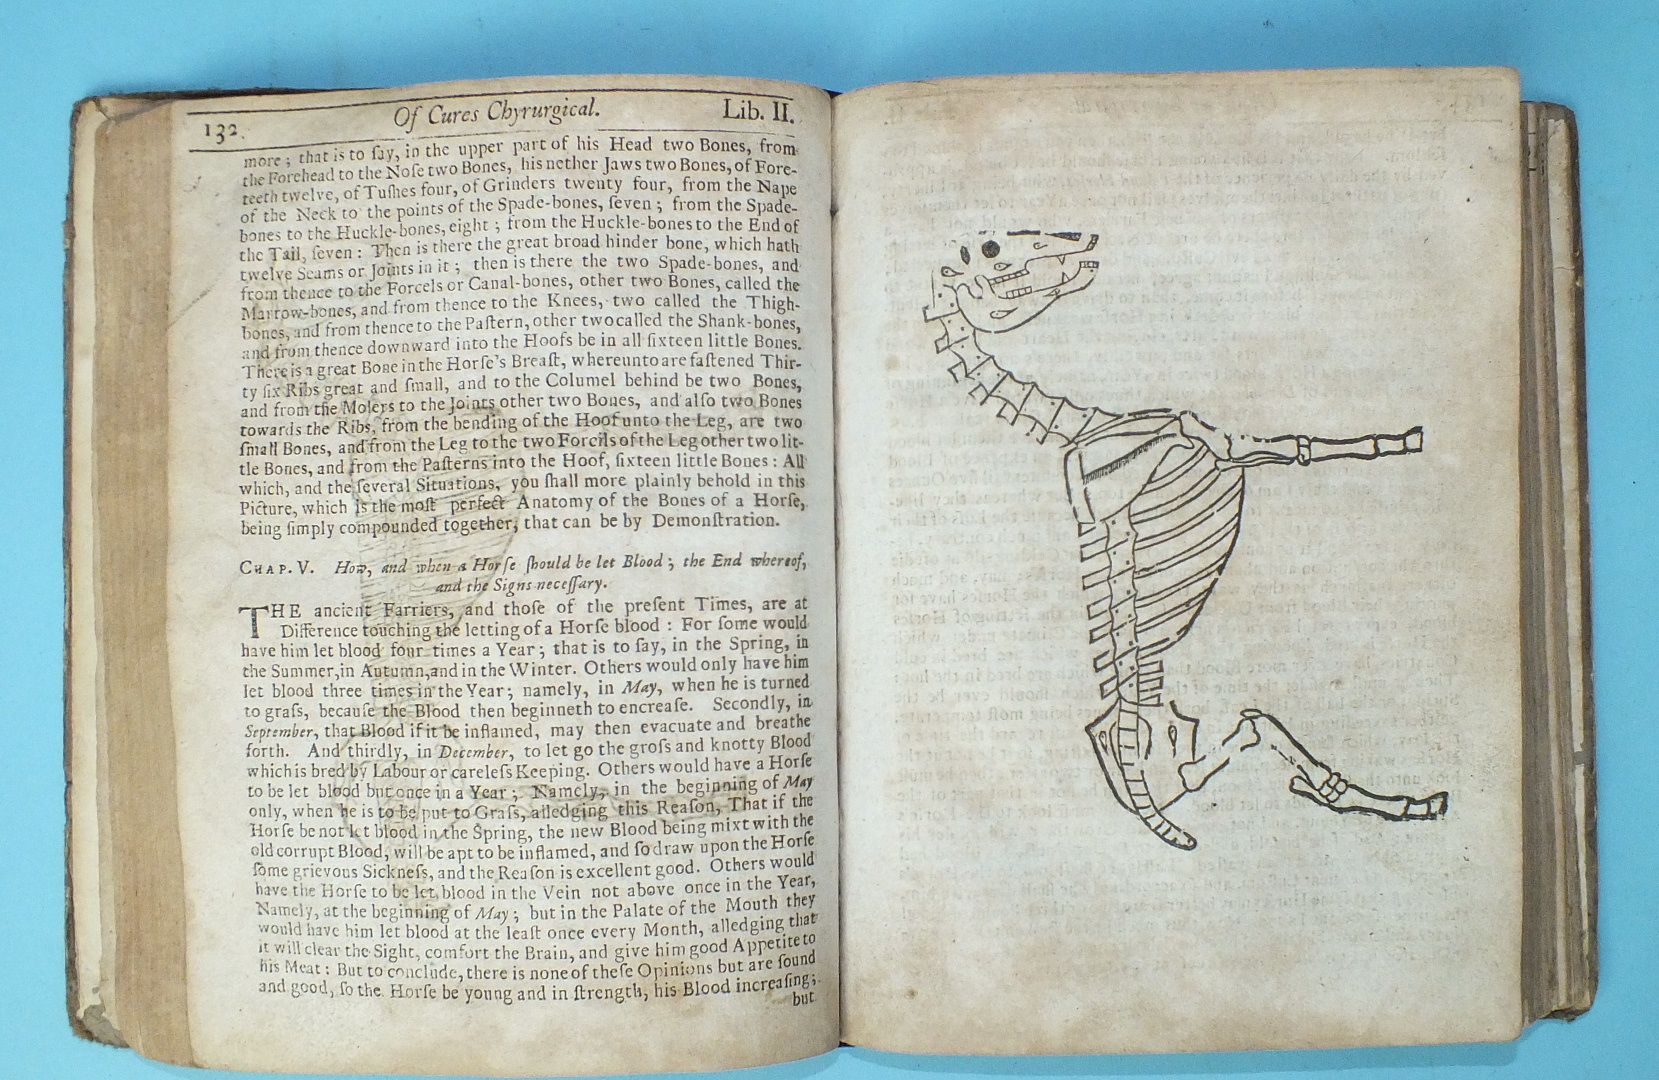 132.
Of Cures Chyrurgical.
Lib. II.
more; that is to ſay, in the upper part of his Head two Bones, from
the Forehead to the Noſe two Bones, his nether Jaws two Bones, of Fore-
teeth twelve, of Tuſhes four, of Grinders twenty four, from the Nape
of the Neck to the points of the Spade-bones, ſeven; from the Spade-
bones to the Huckle-bones, eight; from the Huckle-bones to the End of
the Tail, ſeven: Then is there the great broad hinder bone, which hath
twelve Seams or Joints in it; then is there the two Spade-bones, and
from thence to the Forcels or Canal-bones, other two Bones, called the
Marrow-bones, and from thence to the Knees, two called the Thigh-
bones, and from thence to the Paſtern, other two called the Shank-bones,
and from thence downward into the Hoofs be in all ſixteen little Bones.
There is a great Bone in the Horſe's Breaſt, whereunto are faſtened Thir-
ty ſix Ribs great and ſmall, and to the Columel behind be two Bones,
and from the Molers to the Joints other two Bones, and alſo two Bones
towards the Ribs, from the bending of the Hoof unto the Leg, are two
ſmall Bones, and from the Leg to the two Forcils of the Leg other two lit-
tle Bones, and from the Paſterns into the Hoof, ſixteen little Bones: All
which, and the ſeveral Situations, you ſhall more plainly behold in this
Picture, which is the moſt perfect Anatomy of the Bones of a Horſe,
being ſimply compounded together, that can be by Demonſtration.
CHAP. V. How, and when a Horſe ſhould be let Blood; the End whereof,
and the Signs neceſſary.
THE ancient Farriers, and thoſe of the preſent Times, are at
Difference touching the letting of a Horſe blood: For ſome would
have him let blood four times a Year; that is to ſay, in the Spring, in
the Summer, in Autumn, and in the Winter. Others would only have him
let blood three times in the Year; namely, in May, when he is turned
to graſs, becauſe the Blood then beginneth to encreaſe. Secondly, in
September, that Blood if it be inflamed, may then evacuate and breathe
forth. And thirdly, in December, to let go the groſs and knotty Blood
which is bred by Labour or careleſs Keeping. Others would have a Horſe
to be let blood but once in a Year; Namely, in the beginning of May
only, when he is to be put to Graſs, alledging this Reaſon, That if the
Horſe be not let blood in the Spring, the new Blood being mixt with the
old corrupt Blood, will be apt to be inflamed, and ſo draw upon the Horſe
ſome grievous Sickneſs, and the Reaſon is excellent good. Others would
have the Horſe to be let blood in the Vein not above once in the Year,
Namely, at the beginning of May; but in the Palate of the Mouth they
would have him let blood at the leaſt once every Month, alledging that
it will clear the Sight, comfort the Brain, and give him good Appetite to
his Meat: But to conclude, there is none of theſe Opinions but are ſound
and good, ſo the Horſe be young and in ſtrength, his Blood increaſing;
but